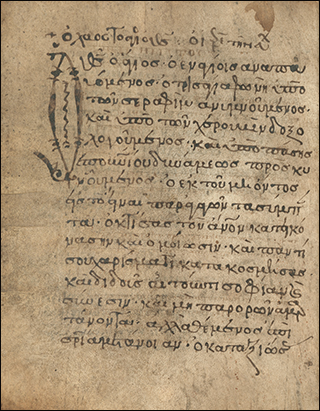 ὁ λαὸς τὸ ἅγιος
ὁ θς ὁ ἅγιος· ὁ ἐν ἁγίοις ἀναπαυ
όμενος· ὁ τρισαγίω φωνῆ ὑπὸ
τῶν σεραφὶμ ἀνυμνούμενος·
καὶ ὑπὸ τῶν χερουβὶμ δοξο
λογούμενος· καὶ ὑπὸ πάσης
ἐπουνίου δυνάμεως προσκυ
νούμενος· ὁ ἐκ τοῦ μὴ ὄντος
εἰς τὸ εἶναι παραγαγὼν τὰ σύμπα
τα· ὁ κτίσας τὸν ἄνον κατ' εἰκό
να σὴν καὶ ὁμοίωσιν· καὶ παντί
σου χαρίσματι κατακοσμήσας·
καὶ διδοὺς αἰτοῦντι σοφίαν καὶ
σύνεσιν· καὶ μὴ παρορῶν ἁμαρ
τάνοντα· ἀλλὰ θέμενος ἐπὶ
σρία μετάνοιαν· ὁ καταξιώσας